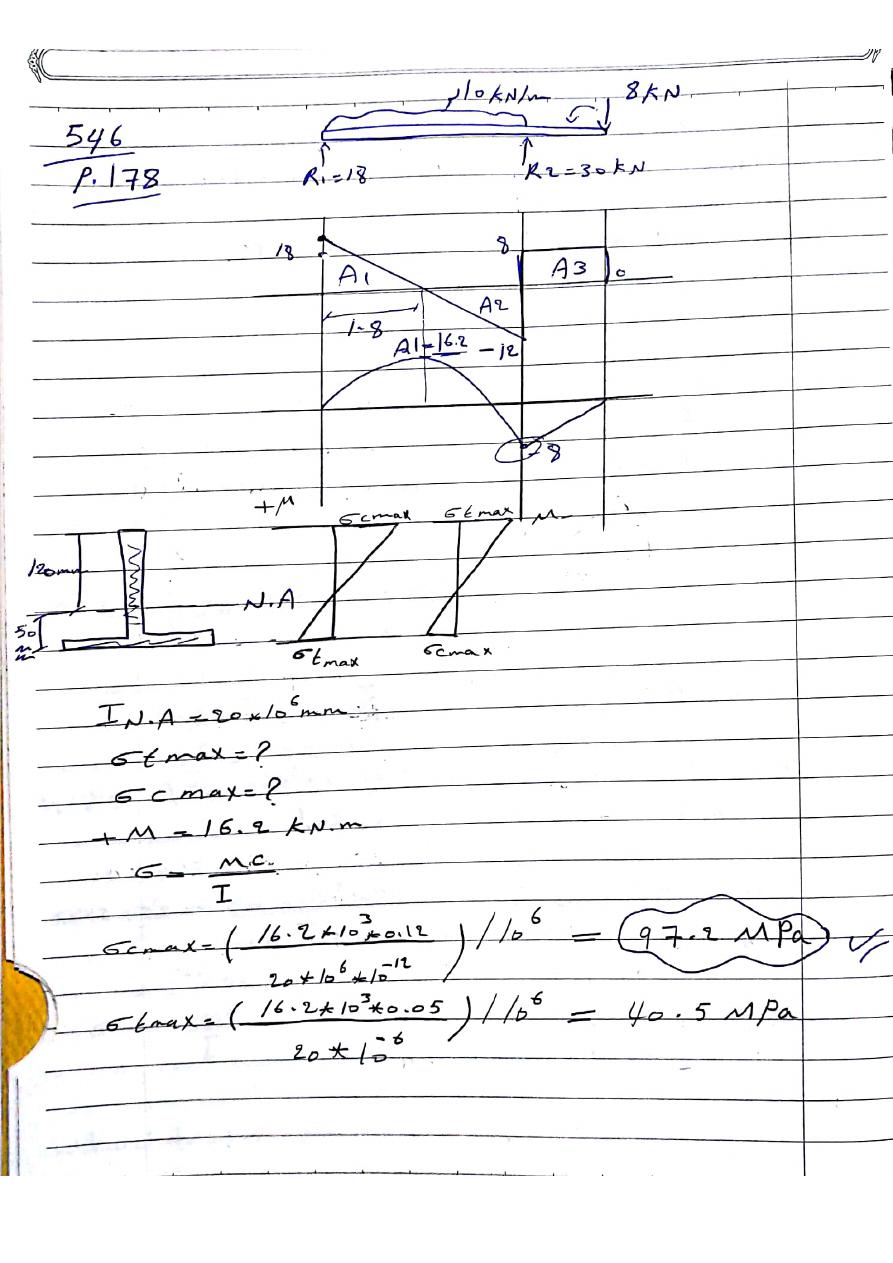 10 KN/m 8 KN
546
P. 178
R1=18 R2=30 KN
18 8
A1 A3 0
A2
1.8
A1=16.2 -12
-8
+M σcmax σtmax M-
120mm
N.A
50
σtmax σcmax
I N.A = 20 * 10^6 mm
σt max = ?
σc max = ?
+M = 16.2 KN.m
σ = M.C. / I
σcmax = ( 16.2 * 10^3 * 0.12 / 20 * 10^6 * 10^-12 ) / 10^6 = 97.2 MPa
σtmax = ( 16.2 * 10^3 * 0.05 / 20 * 10^-6 ) / 10^6 = 40.5 MPa